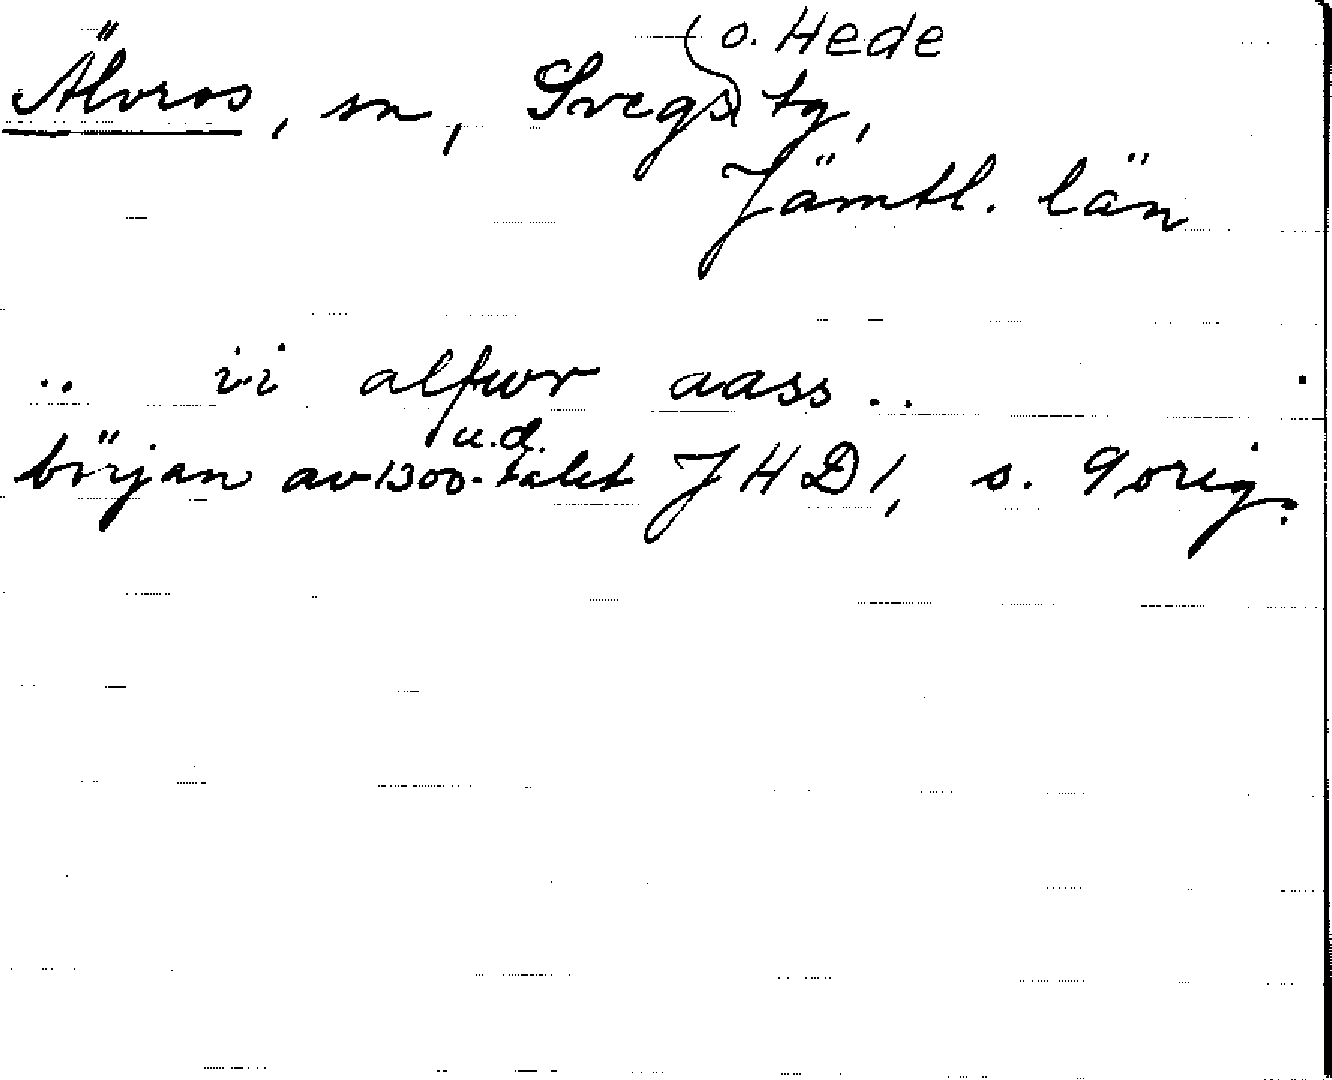 Älvros, sn, Svegs o. Hede tg,
Jämtl. län
.. i i alfwr aass ..
början av 1300-talet u.d. JHD 1, s. 9 orig.